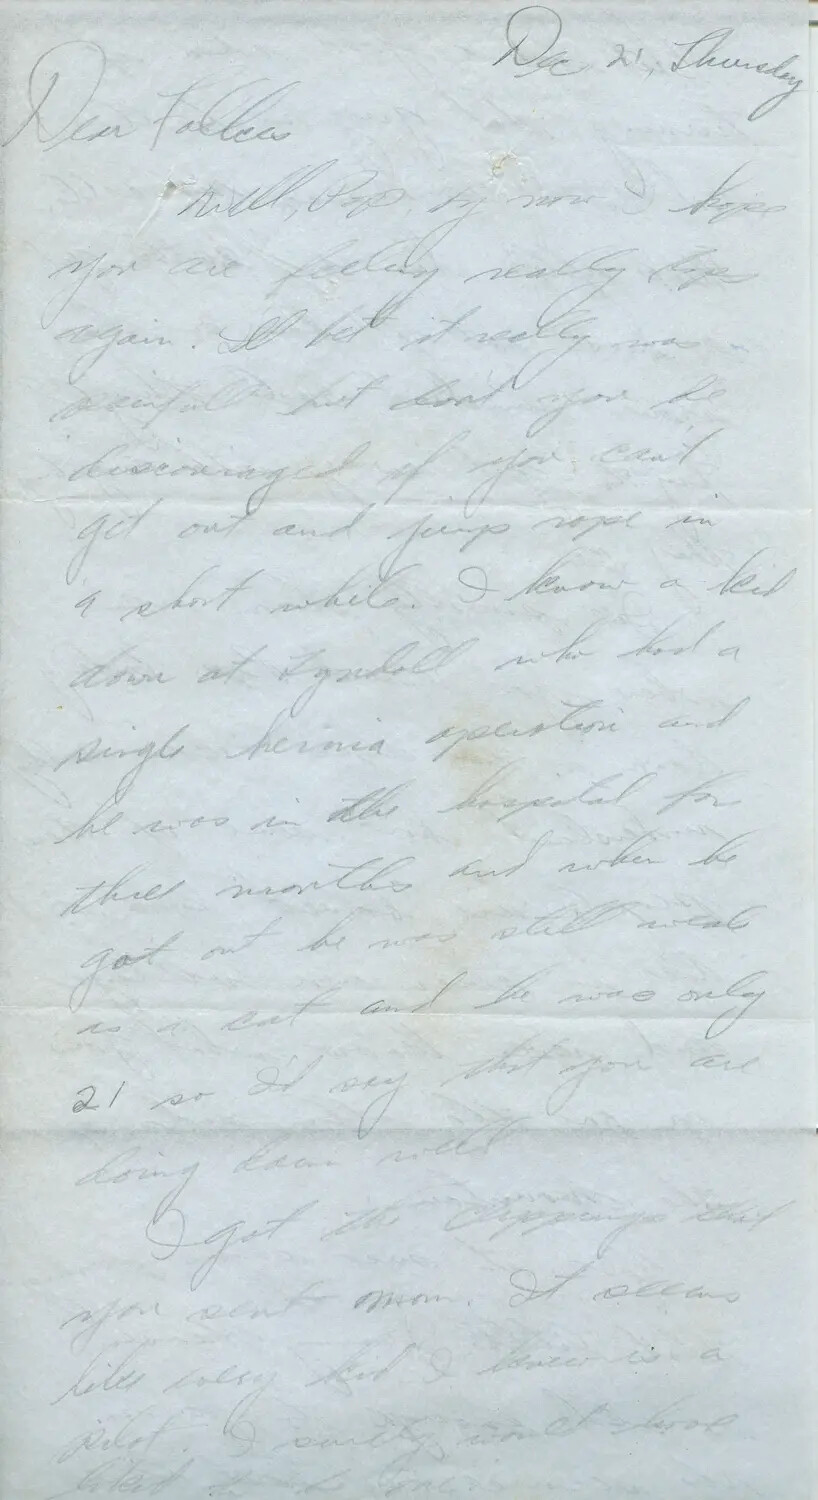 Dec 21, Thursday
Dear Folkes
Well, Pop, by now I hope
you are feeling really tops
again. I'll bet it really was
painful but don't you be
discouraged if you can't
get out and jump rope in
a short while. I know a kid
down at Tyndall who had a
single hernia operation and
he was in the hospital for
three months and when he
got out he was still weak
as a cat and he was only
21 so I'd say that you are
doing damn well.
I got the clippings that
you sent Mom. It seems
like every kid I knew is a
pilot. I surely would have
liked to